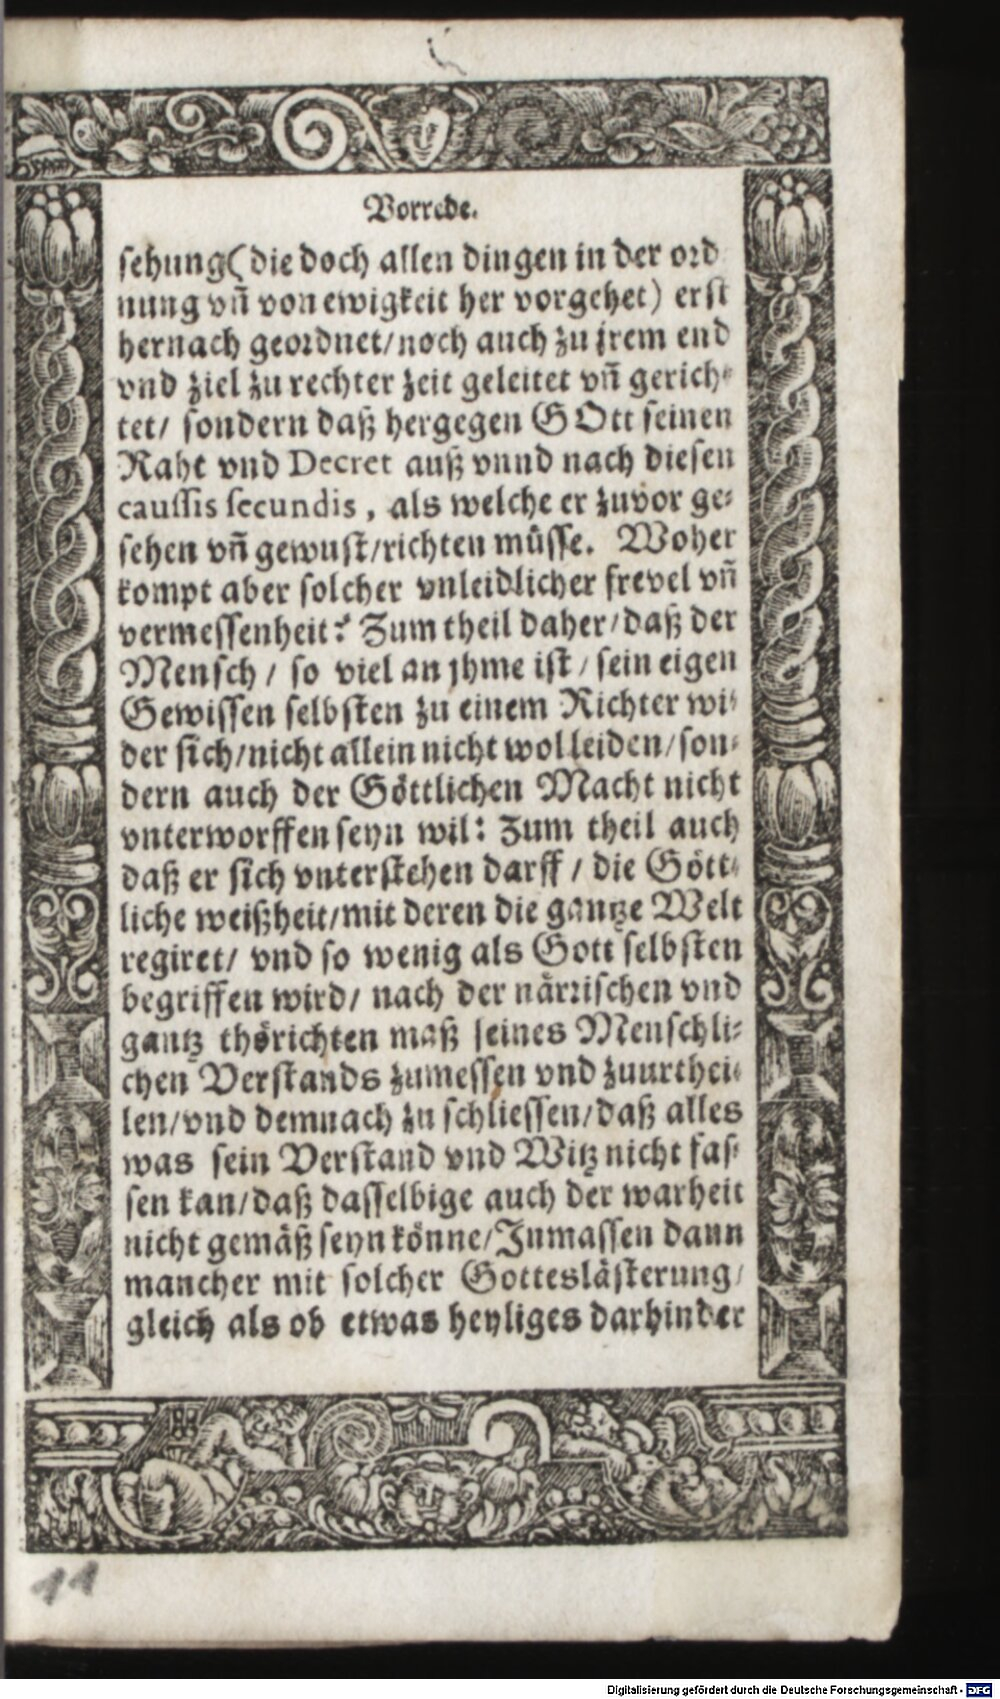 Vorrede.
sehung(die doch allen dingen in der ord
nung vñ von ewigkeit her vorgehet) erst
hernach geordnet/noch auch zu jrem end
vnd ziel zu rechter zeit geleitet vñ gerich-
tet/ sondern daß hergegen GOtt seinen
Raht vnd Decret auß vnnd nach diesen
caussis secundis, als welche er zuvor ge-
sehen vñ gewust/richten müsse. Woher
kompt aber solcher vnleidlicher frevel vñ
vermessenheit? Zum theil daher/daß der
Mensch/ so viel an jhme ist/ sein eigen
Gewissen selbsten zu einem Richter wi-
der sich/nicht allein nicht wol leiden/son-
dern auch der Göttlichen Macht nicht
vnterworffen seyn wil: Zum theil auch
daß er sich vnterstehen darff/ die Gött-
liche weißheit/mit deren die gantze Welt
regiret/ vnd so wenig als Gott selbsten
begriffen wird/ nach der närrischen vnd
gantz thörichten maß seines Menschli-
chen Verstands zumessen vnd zuurthei-
len/vnd demnach zu schliessen/daß alles
was sein Verstand vnd Witz nicht fas-
sen kan/daß dasselbige auch der warheit
nicht gemäß seyn könne/Inmassen dann
mancher mit solcher Gotteslästerung/
gleich als ob etwas heyliges darhinder
11
Digitalisierung gefördert durch die Deutsche Forschungsgemeinschaft - DFG